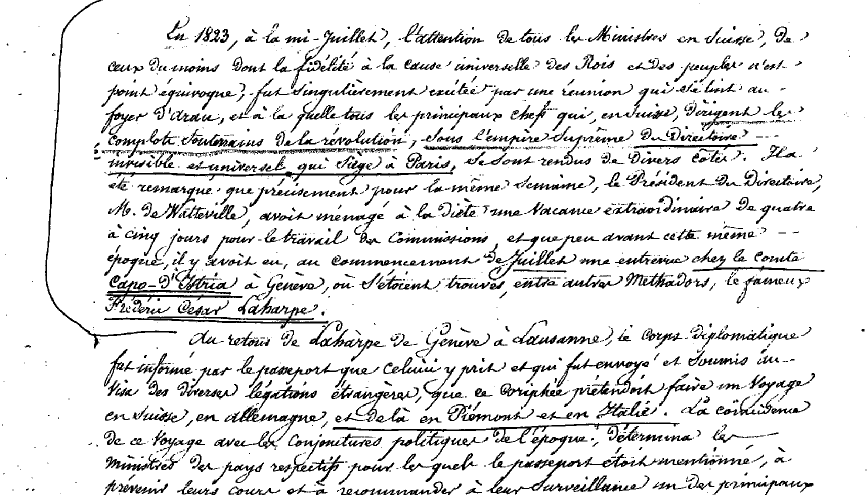 En 1823, à la mi-Juillet, l'attention de tous les Ministres en Suisse, de
ceux du moins dont la fidélité à la cause universelle des Rois et des peuples n'est
point équivoque, fut singulièrement excitée par une réunion qui se tint au
foyer d'Arau, et à la quelle tous les principaux chefs qui, en Suisse, dirigent les
complots souterrains de la révolution, sous l'empire Suprême du Directoire
invisible et universel qui Siège à Paris, se sont rendus de divers côtés. Il a
été remarqué que précisément pour la même Semaine, le Président du Directoire,
M. de Watteville, avoit ménagé à la diète une Vacance extraordinaire de quatre
à cinq jours pour le travail des Commissions, et que peu avant cette même
époque, il y avoit eu, au commencement de Juillet une entrevue chez le Comte
Capo-d'Istria à Genève, où s'étoient trouvés, entre autres Methadors, le fameux
Frédéric César Laharpe.
Au retour de Laharpe de Genève à Lausanne, le Corps diplomatique
fut informé par le passeport que celuici y prit et qui fut envoyé et soumis au
Visa des diverses légations étrangères, que ce Coriphée prétendoit faire un Voyage
en Suisse, en Allemagne, et de là en Piémont et en Italie. La coïncidence
de ce Voyage avec les Conjonctures politiques de l'époque, détermina les
ministres des pays respectifs pour les quels le passeport étoit mentionné, à
prévenir leurs cours et à recommander à leur Surveillance un des principaux